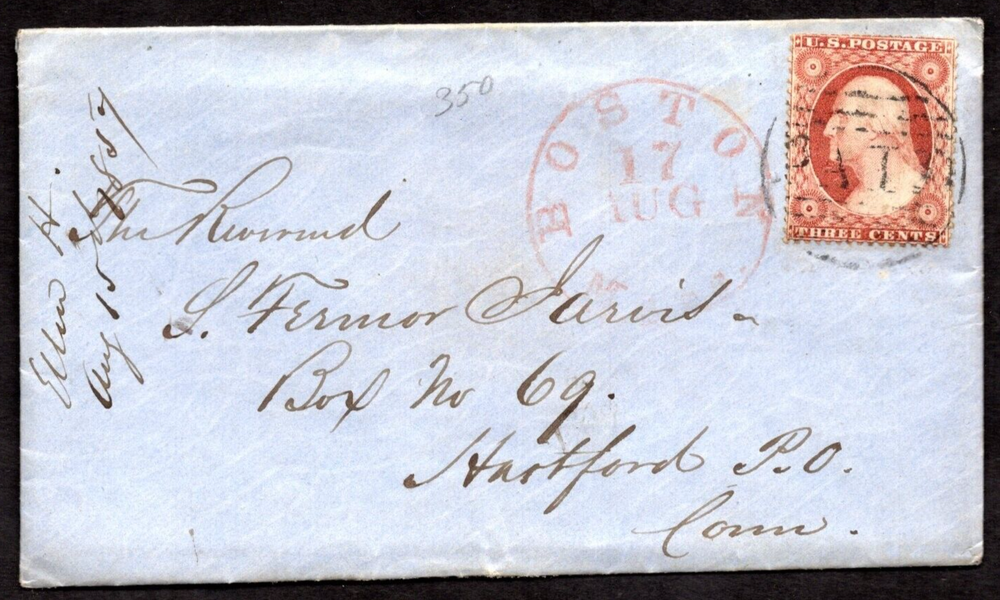 U.S. POSTAGE
THREE CENTS
PAID
350
BOSTON
17
AUG
The Reverend
S. Fermor Jarvis
Box No 69.
Hartford P.O.
Conn.
Ellen H.
Aug 15th 1857